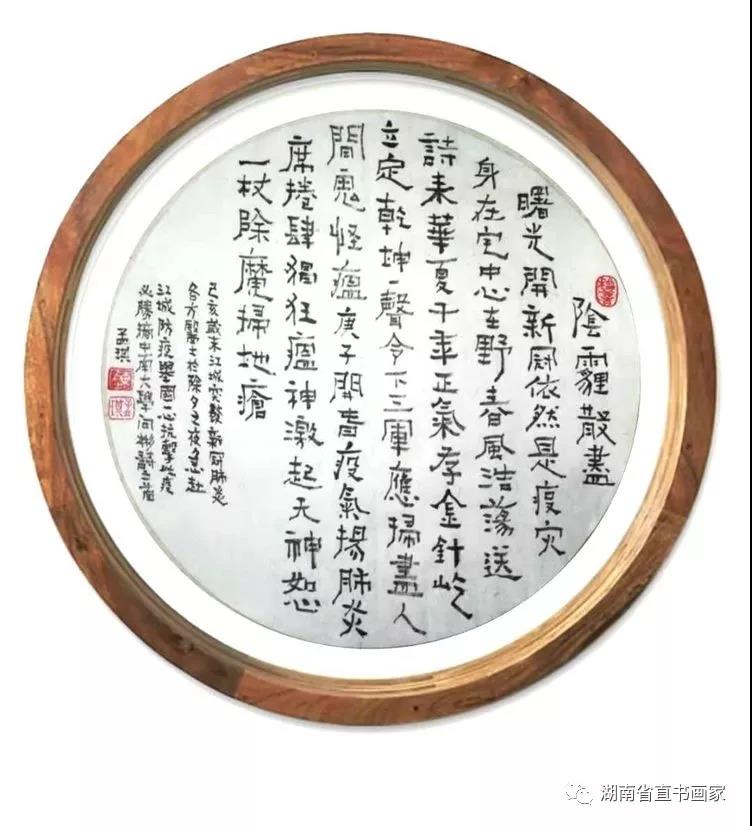 陰霾散盡
曙光開新冠依然是疫灾
身在宅中心在野春風浩蕩送
詩來華夏千年正氣存金針屹
立定乾坤一聲令下三軍應掃盡人
間鬼怪瘟庚子開春疫氣揚肺炎
席捲肆獨狂瘟神激起天神怒
一杖除魔掃地瘡
己亥歲末江城突發新冠肺炎
各方醫士於除夕之夜急赴
江城防疫舉國一心抗擊此疫
必勝摘中南大學何彬詩三首
孟琪
湖南省直书画家